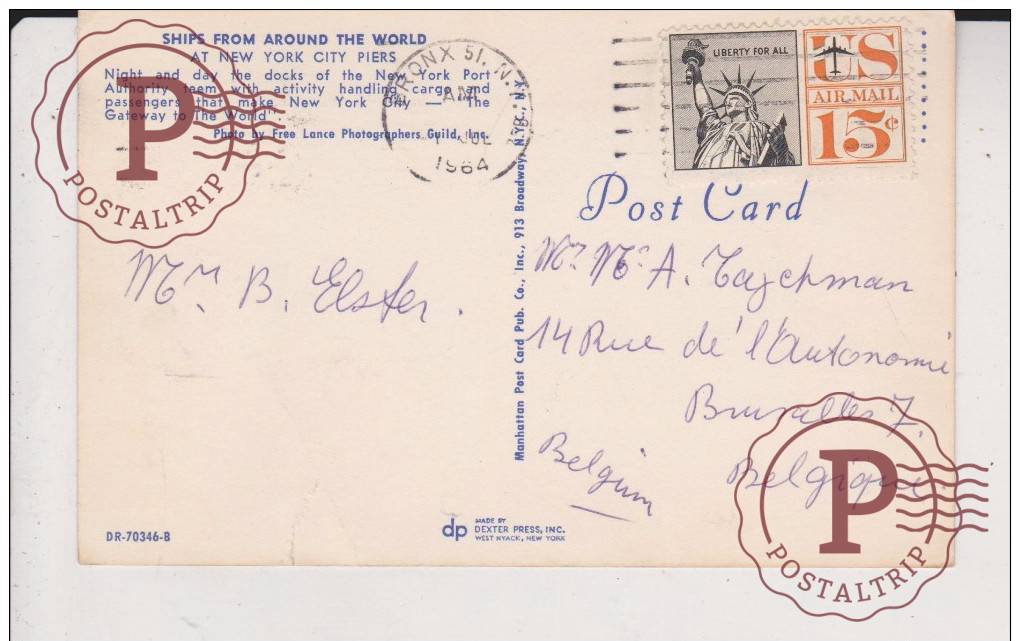 SHIPS FROM AROUND THE WORLD
AT NEW YORK CITY PIERS
Night and day the docks of the New York Port
Authority teem with activity handling cargo and
passengers that make New York City — "The
Gateway to The World".
Photo by Free Lance Photographers Guild, Inc.
BRONX 51, N.Y.
AM
JUL
1964
LIBERTY FOR ALL
US
AIR MAIL
15¢
Post Card
Manhattan Post Card Pub. Co., Inc., 913 Broadway, N.Y.C., N.Y.
B. Elster.
A. Tajchman
14 Rue de l'Autonomie
Bruxelles 7.
Belgique
Belgium
DR-70346-B
dp
MADE BY
DEXTER PRESS, INC.
WEST NYACK, NEW YORK
P
POSTALTRIP
P
POSTALTRIP